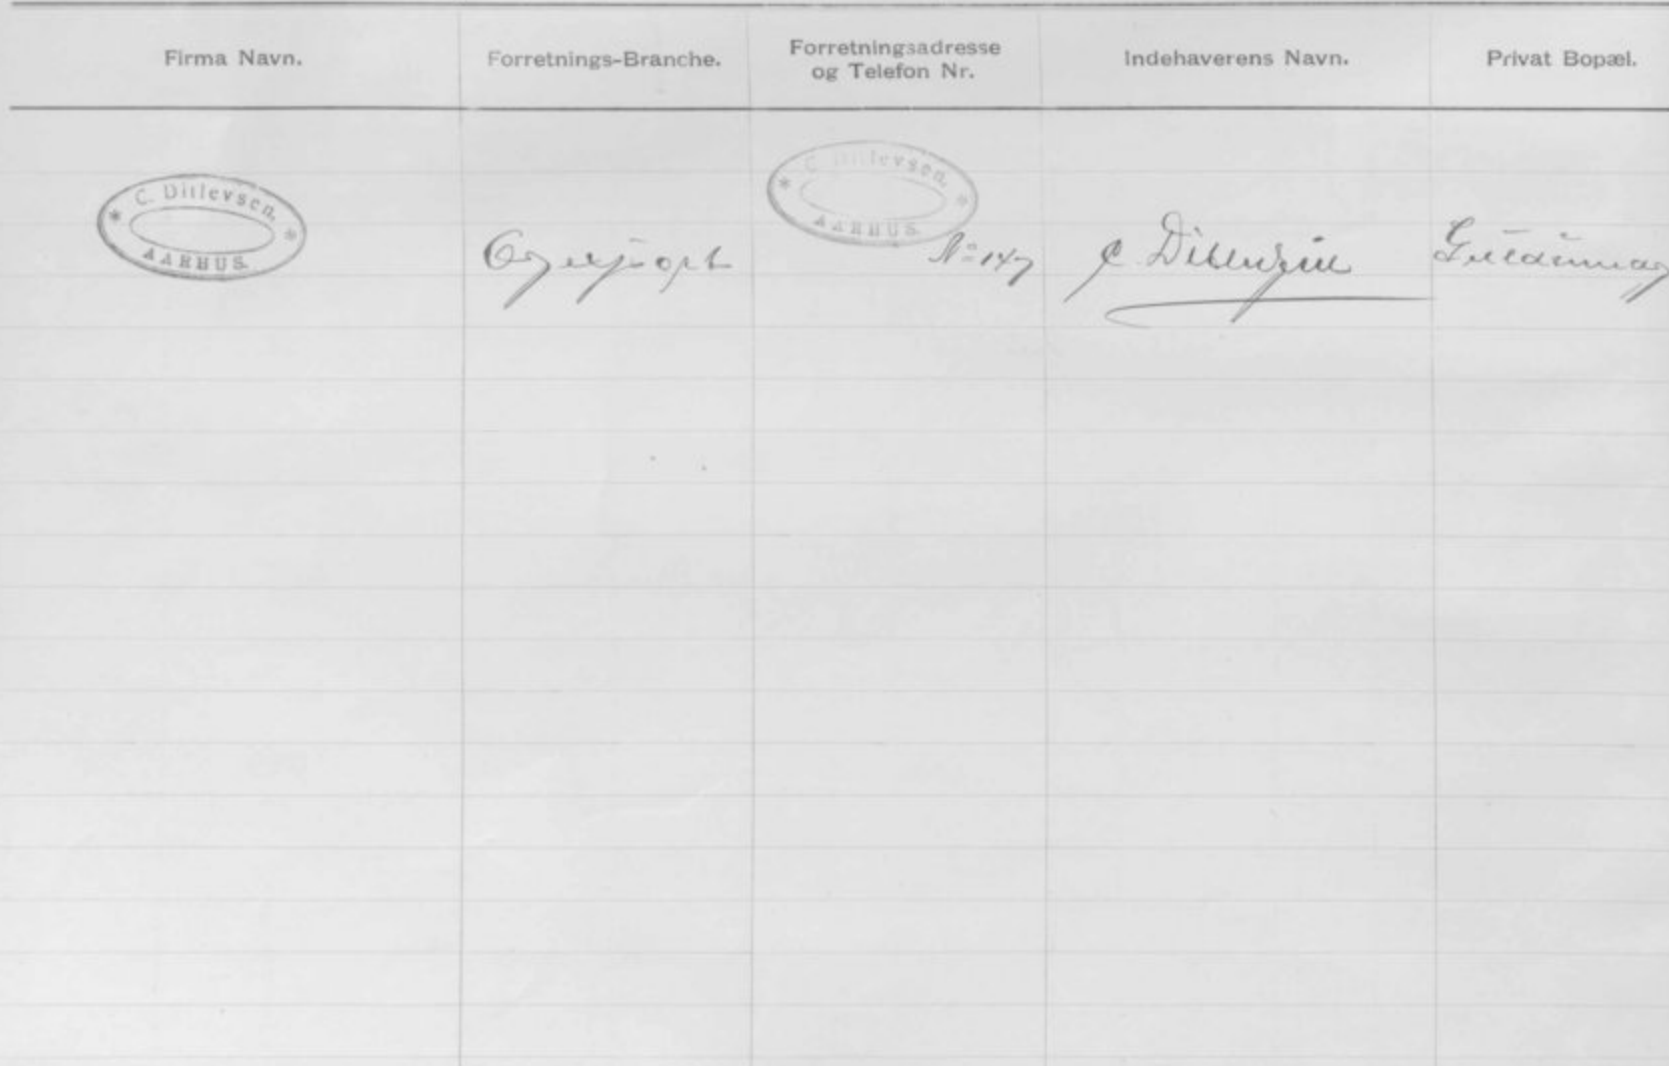 Firma Navn.
Forretnings-Branche.
Forretningsadresse
og Telefon Nr.
Indehaverens Navn.
Privat Bopæl.
C. Ditlevsen,
AARHUS.
C. Ditlevsen,
AARHUS.
No 147
C Ditlevsen